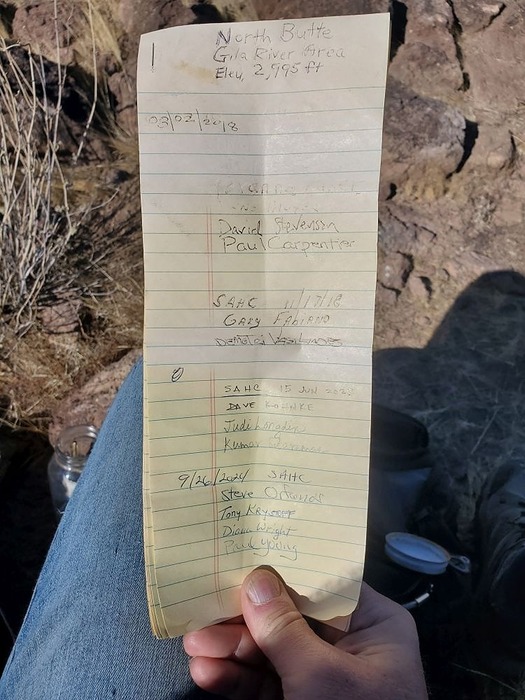 North Butte
Gila River Area
Elev, 2,995 ft
03/03/2018
David Stevenson
Paul Carpentier
SAHC 11/17/18
Gary Fabiano
SAHC 15 JUN
DAVE
Judi
Kumar
9/26/2024 SAHC
Steve
Tony
Diana Wright
Paul Young